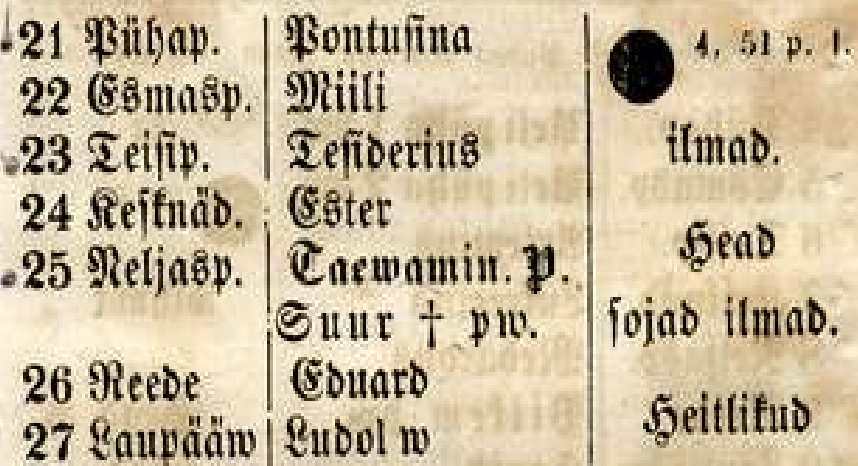 21 Pühap. Pontusina 4. 51 p. l.
22 Esmasp. Miili
23 Teisip. Tesiderius ilmad.
24 Kesknäd. Ester Head
25 Neljasp. Taewamin. P.
Suur † pw. sojad ilmad.
26 Reede Eduard
27 Laupääw Ludolw Heitlikud